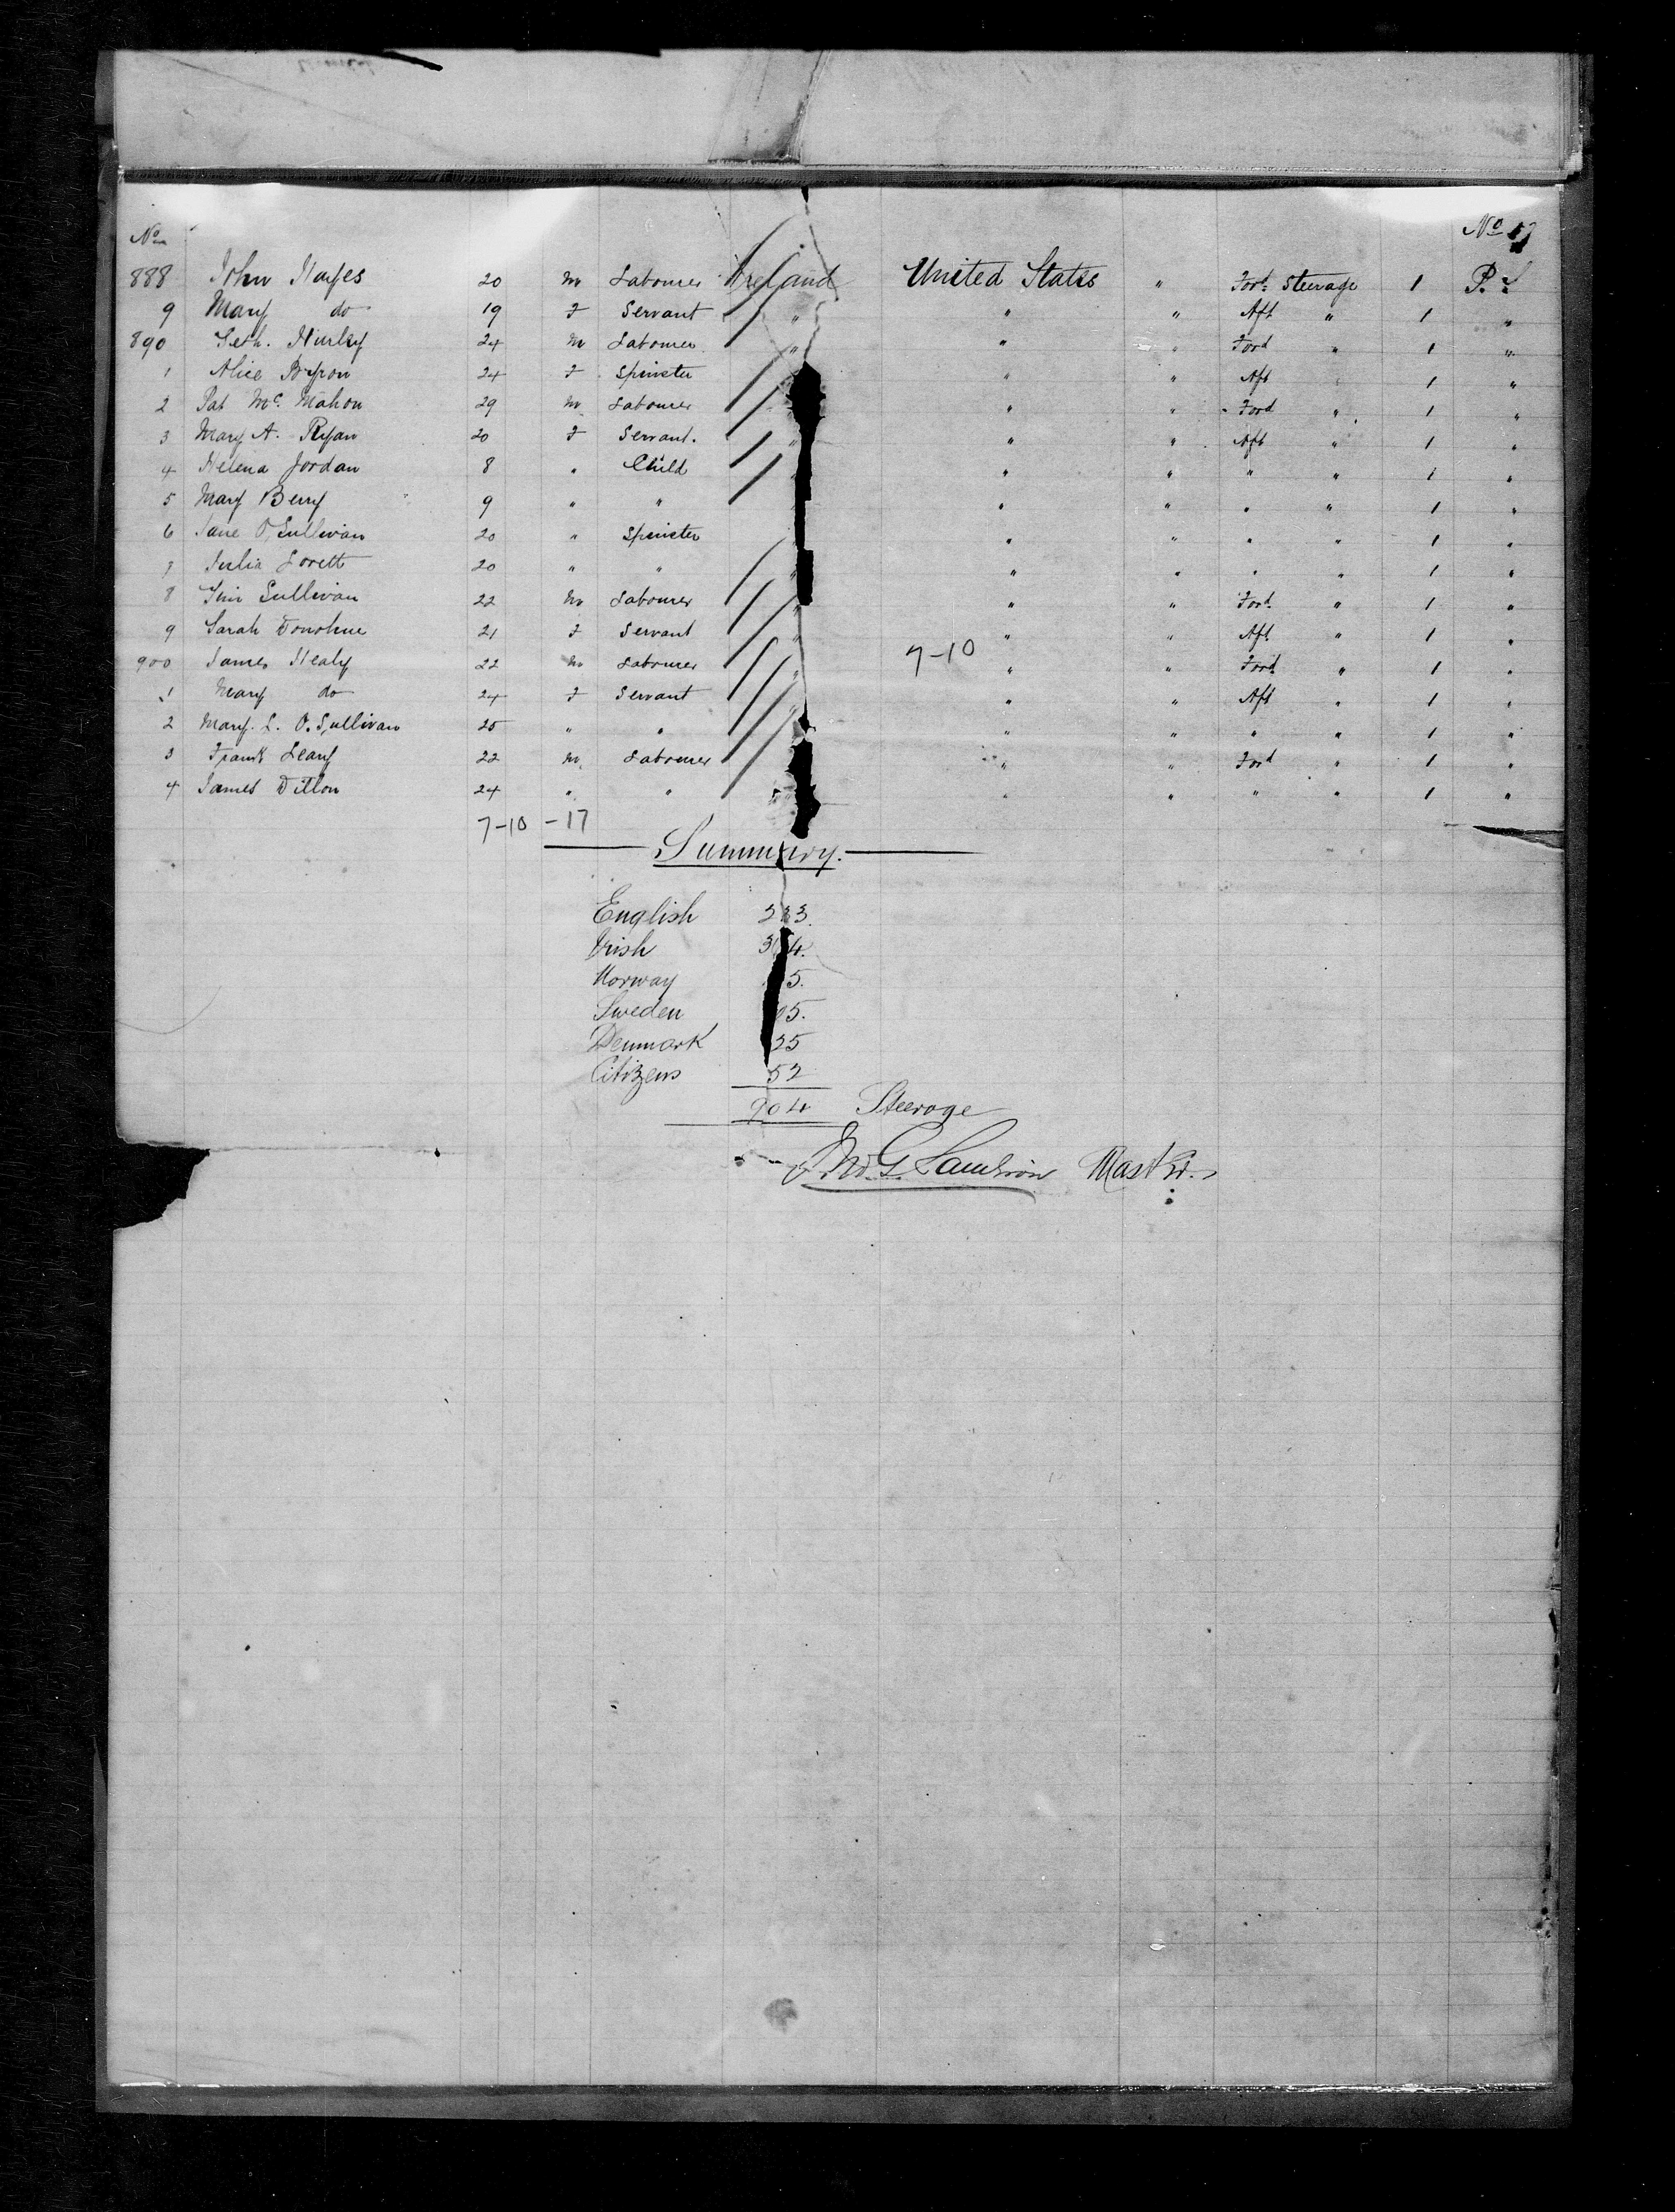 No.
888 John Hayes 20 M Labourer Ireland United States " Ford. Steerage 1 P. L
9 Mary do 19 F Servant " " " Aft " 1 "
890 Jerh. Hurley 24 M Labourer " " " Ford " 1 "
1 Alice Byron 24 F Spinster " " Aft 1 "
2 Pat Mc. Mahon 29 M Labourer " " Ford " 1 "
3 Mary A. Ryan 20 F Servant. " " " Aft " 1 "
4 Helena Jordan 8 " Child " " " " 1 "
5 Mary Berry 9 " " " " " " 1 "
6 Jane O'Sullivan 20 " Spinster " " " " 1 "
7 Julia Lovett 20 " " " " " " " 1 "
8 Tim Sullivan 22 M Labourer " " " Ford. " 1 "
9 Sarah Donohue 21 F Servant " " " Aft 1 "
900 James Healy 22 M Labourer 7-10 " " Ford " 1 "
1 Mary do 24 F Servant " " Aft " 1 "
2 Mary. L. O.Sullivan 25 " " " " " " 1 "
3 Frank Leary 22 M. Labourer " " Ford " 1 "
4 James Dillon 24 " " " " " " 1 "
7-10 -17
Summary.
English
Irish
Norway
Sweden
Denmark 25
Citizens 52
904 Steerage
Jno. G. Master.